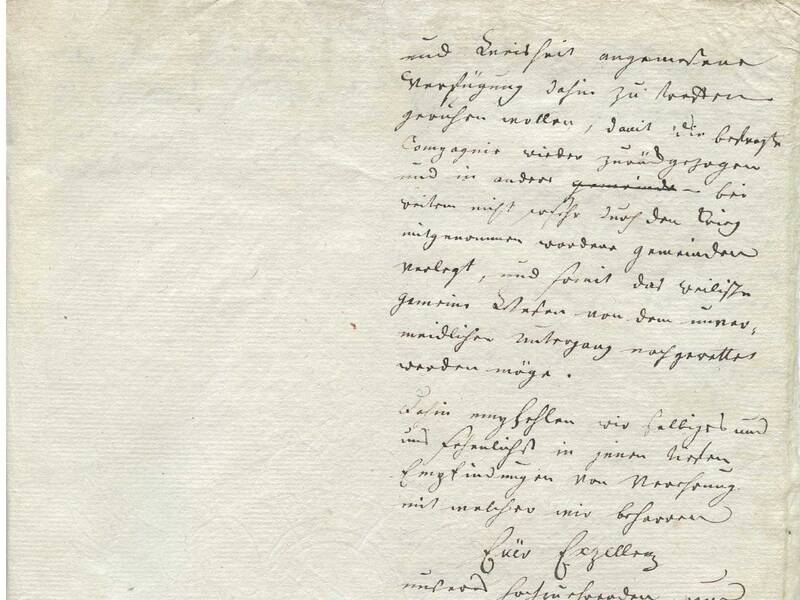 und Weisheit angemessene
Verfügung dahin zu treffen
geruhen wollen, damit die besagte
Compagnie wieder zurückgezogen
und in andere gemeinde – bei
weitem nicht so sehr durch den Krieg
mitgenommen wordene gemeinden
verlegt, und somit das
gemeine Wesen von dem unver-
meidlichen Untergang noch gerettet
werden möge.
Dahin empfehlen wir selbiges und
uns flehenlichst in jenen tiefen
Empfindungen von Verehrung
mit welcher wir beharren
Euer Exzellenz
unseres